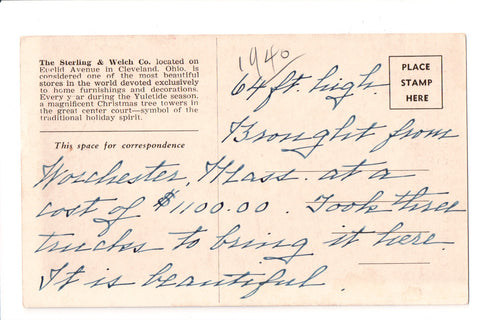 The Sterling & Welch Co. located on
Euclid Avenue in Cleveland, Ohio, is
considered one of the most beautiful
stores in the world devoted exclusively
to home furnishings and decorations.
Every y ar during the Yuletide season,
a magnificent Christmas tree towers in
the great center court—symbol of the
traditional holiday spirit.
This space for correspondence
1940
PLACE
STAMP
HERE
64 ft. high.
Brought from
Worchester, Mass. at a
cost of $1100.00. Took three
trucks to bring it here.
It is beautiful.